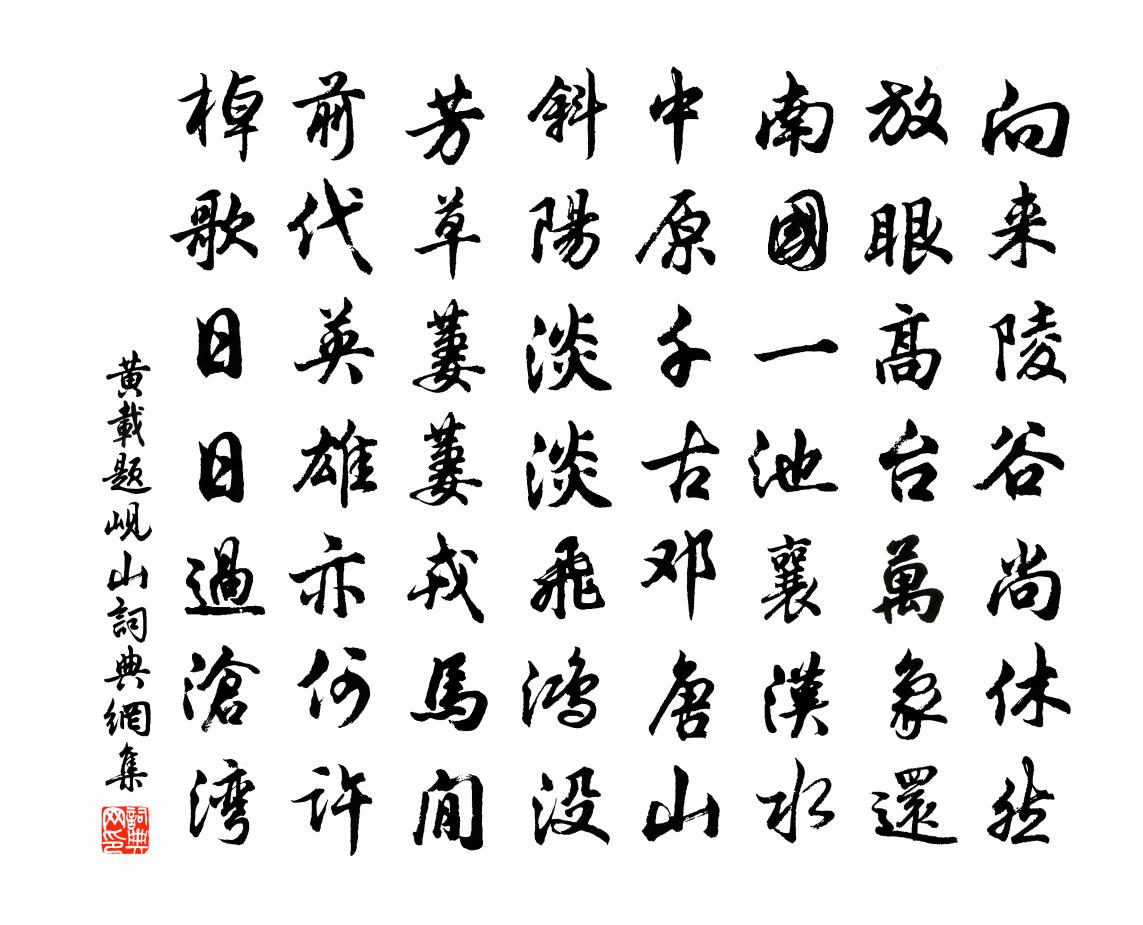 向来陵谷尚休然
放眼高台萬象還
南國一池襄漢水
中原千古邓唐山
斜陽淡淡飛鸿没
芳草萋萋戎馬閒
前代英雄亦何许
棹歌日日過滄湾
黄載题岘山詞典網集
詞典网印